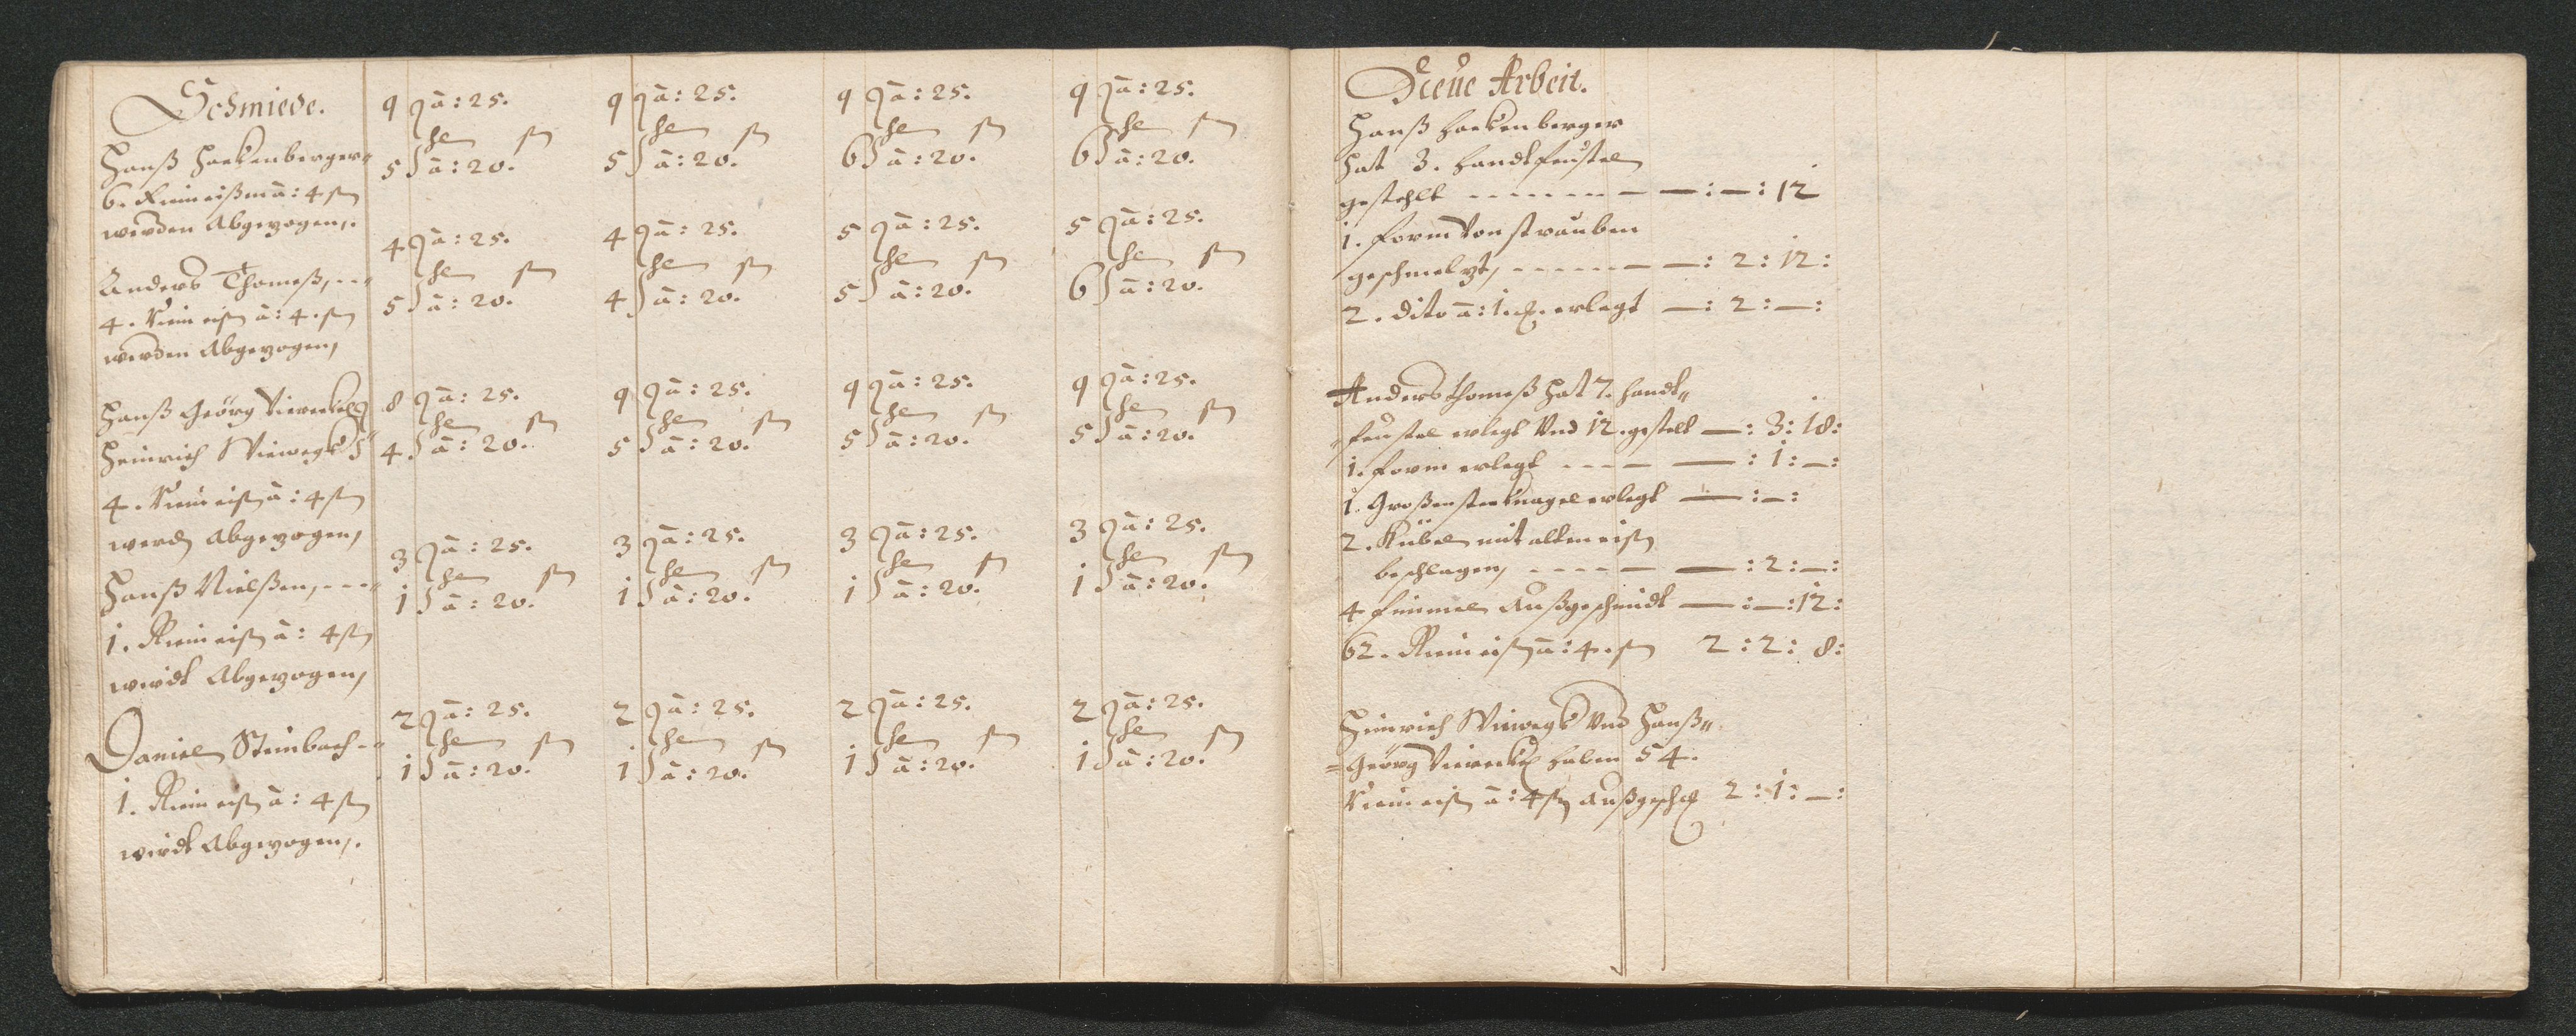 Schmiede.
Hanß Hackenberger
6. Riem eiß̃ à: 4 ß
werden Abgezogen,.
9 à: 25.
5 à: 20. ß
9 à: 25.
5 à: 20. ß
9 à: 25.
6 à: 20. ß
9 à: 25.
6 à: 20. ß
Anders Thomeß,
4. Riem eiß à: 4. ß
werden Abgezogen,
4 à: 25.
5 à: 20. ß
4 à: 25.
4 à: 20. ß
5 à: 25.
5 à: 20. ß
5 à: 25.
6 à: 20. ß
Hanß Geörg
Heinrich Viewegk
4. Riem eiß à: 4 ß
werdẽ Abgezogen,
8 à: 25.
4 à: 20. ß
9 à: 25.
5 à: 20. ß
9 à: 25.
5 à: 20. ß
9 à: 25.
5 à: 20. ß
Hanß Nielßen,
1. Riem eiß à: 4 ß
wirdt Abgezogen,
3 à: 25.
1 à: 20. ß
3 à: 25.
1 à: 20. ß
3 à: 25.
1 à: 20. ß
3 à: 25.
1 à: 20. ß
Daniel Steinbach
1. Riem eiß à: 4 ß
wirdt Abgezogen,.
2 à: 25.
1 à: 20. ß
2 à: 25.
1 à: 20. ß
2 à: 25.
1 à: 20. ß
2 à: 25.
1 à: 20. ß
Neue Arbeit.
Hanß Hackenberger
hat 3. handt feustel
gestehlt — : — : 12
1. form von strauben
geschmeltzt, — : 2 : 12 :
2. dito à: 1. erlegt — : 2 : — :
Anders Thomeß hat 7. handt„
feustel erlegt Und 12. gestelt — : 3 : 18 :
1. form erlegt — : 1 : — :
1. Großen nagel erlegt — : — :
2. Kübel mit alten eiß
beschlagen, — : 2 : — :
4 fimmel Außgeschmidt — : — : 12 :
62. Riem eiß à: 4. ß 2 : 2 : 8 :
Heinrich Viewegk Und Hanß„
Geörg haben 54.
Riem eiß à: 4 ß 2 : 1 : — :